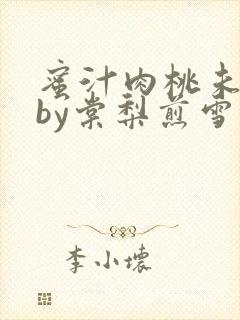 蜜汁肉桃未
by棠梨煎雪
李小壞